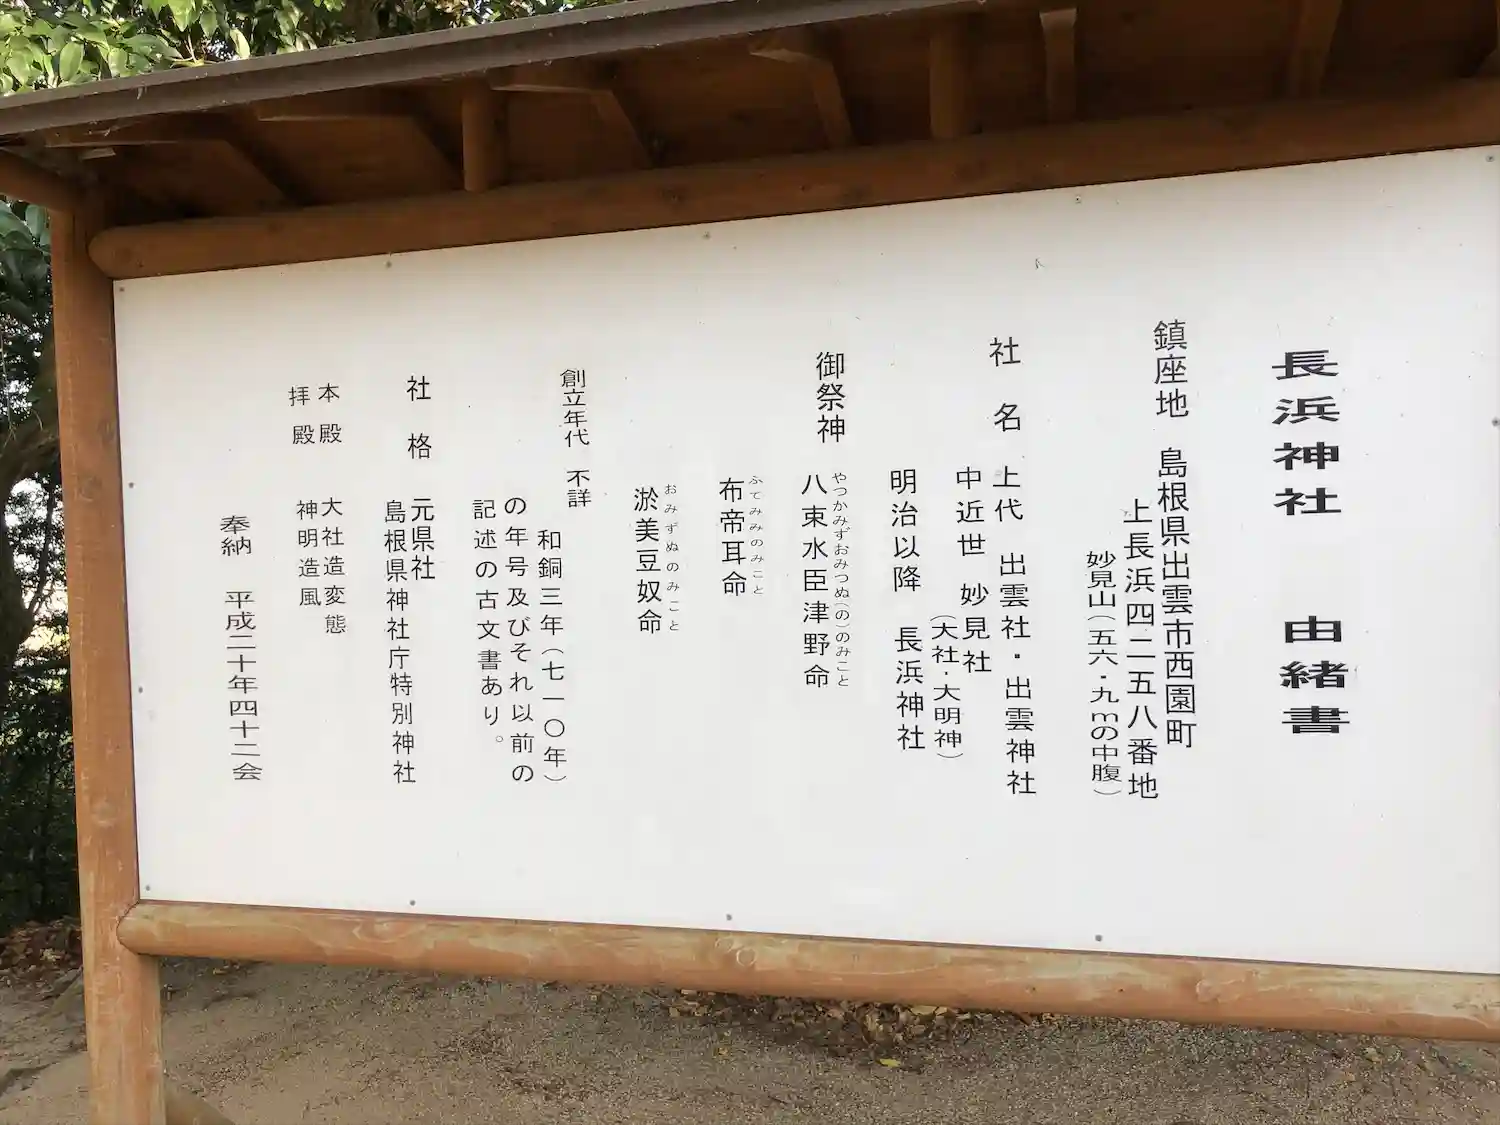 長浜神社　由緒書
鎮座地　島根県出雲市西園町
上長浜四二五八番地
妙見山（五六・九mの中腹）
社　名　上代　出雲社・出雲神社
中近世　妙見社
（大社・大明神）
明治以降　長浜神社
御祭神　八束水臣津野命
やつかみずおみつぬ（の）のみこと
布帝耳命
ふてみみのみこと
淤美豆奴命
おみずぬのみこと
創立年代　不詳
和銅三年（七一〇年）
の年号及びそれ以前の
記述の古文書あり。
社　格　元県社
島根県神社庁特別神社
本殿　大社造変態
拝殿　神明造風
奉納　平成二十年四十二会